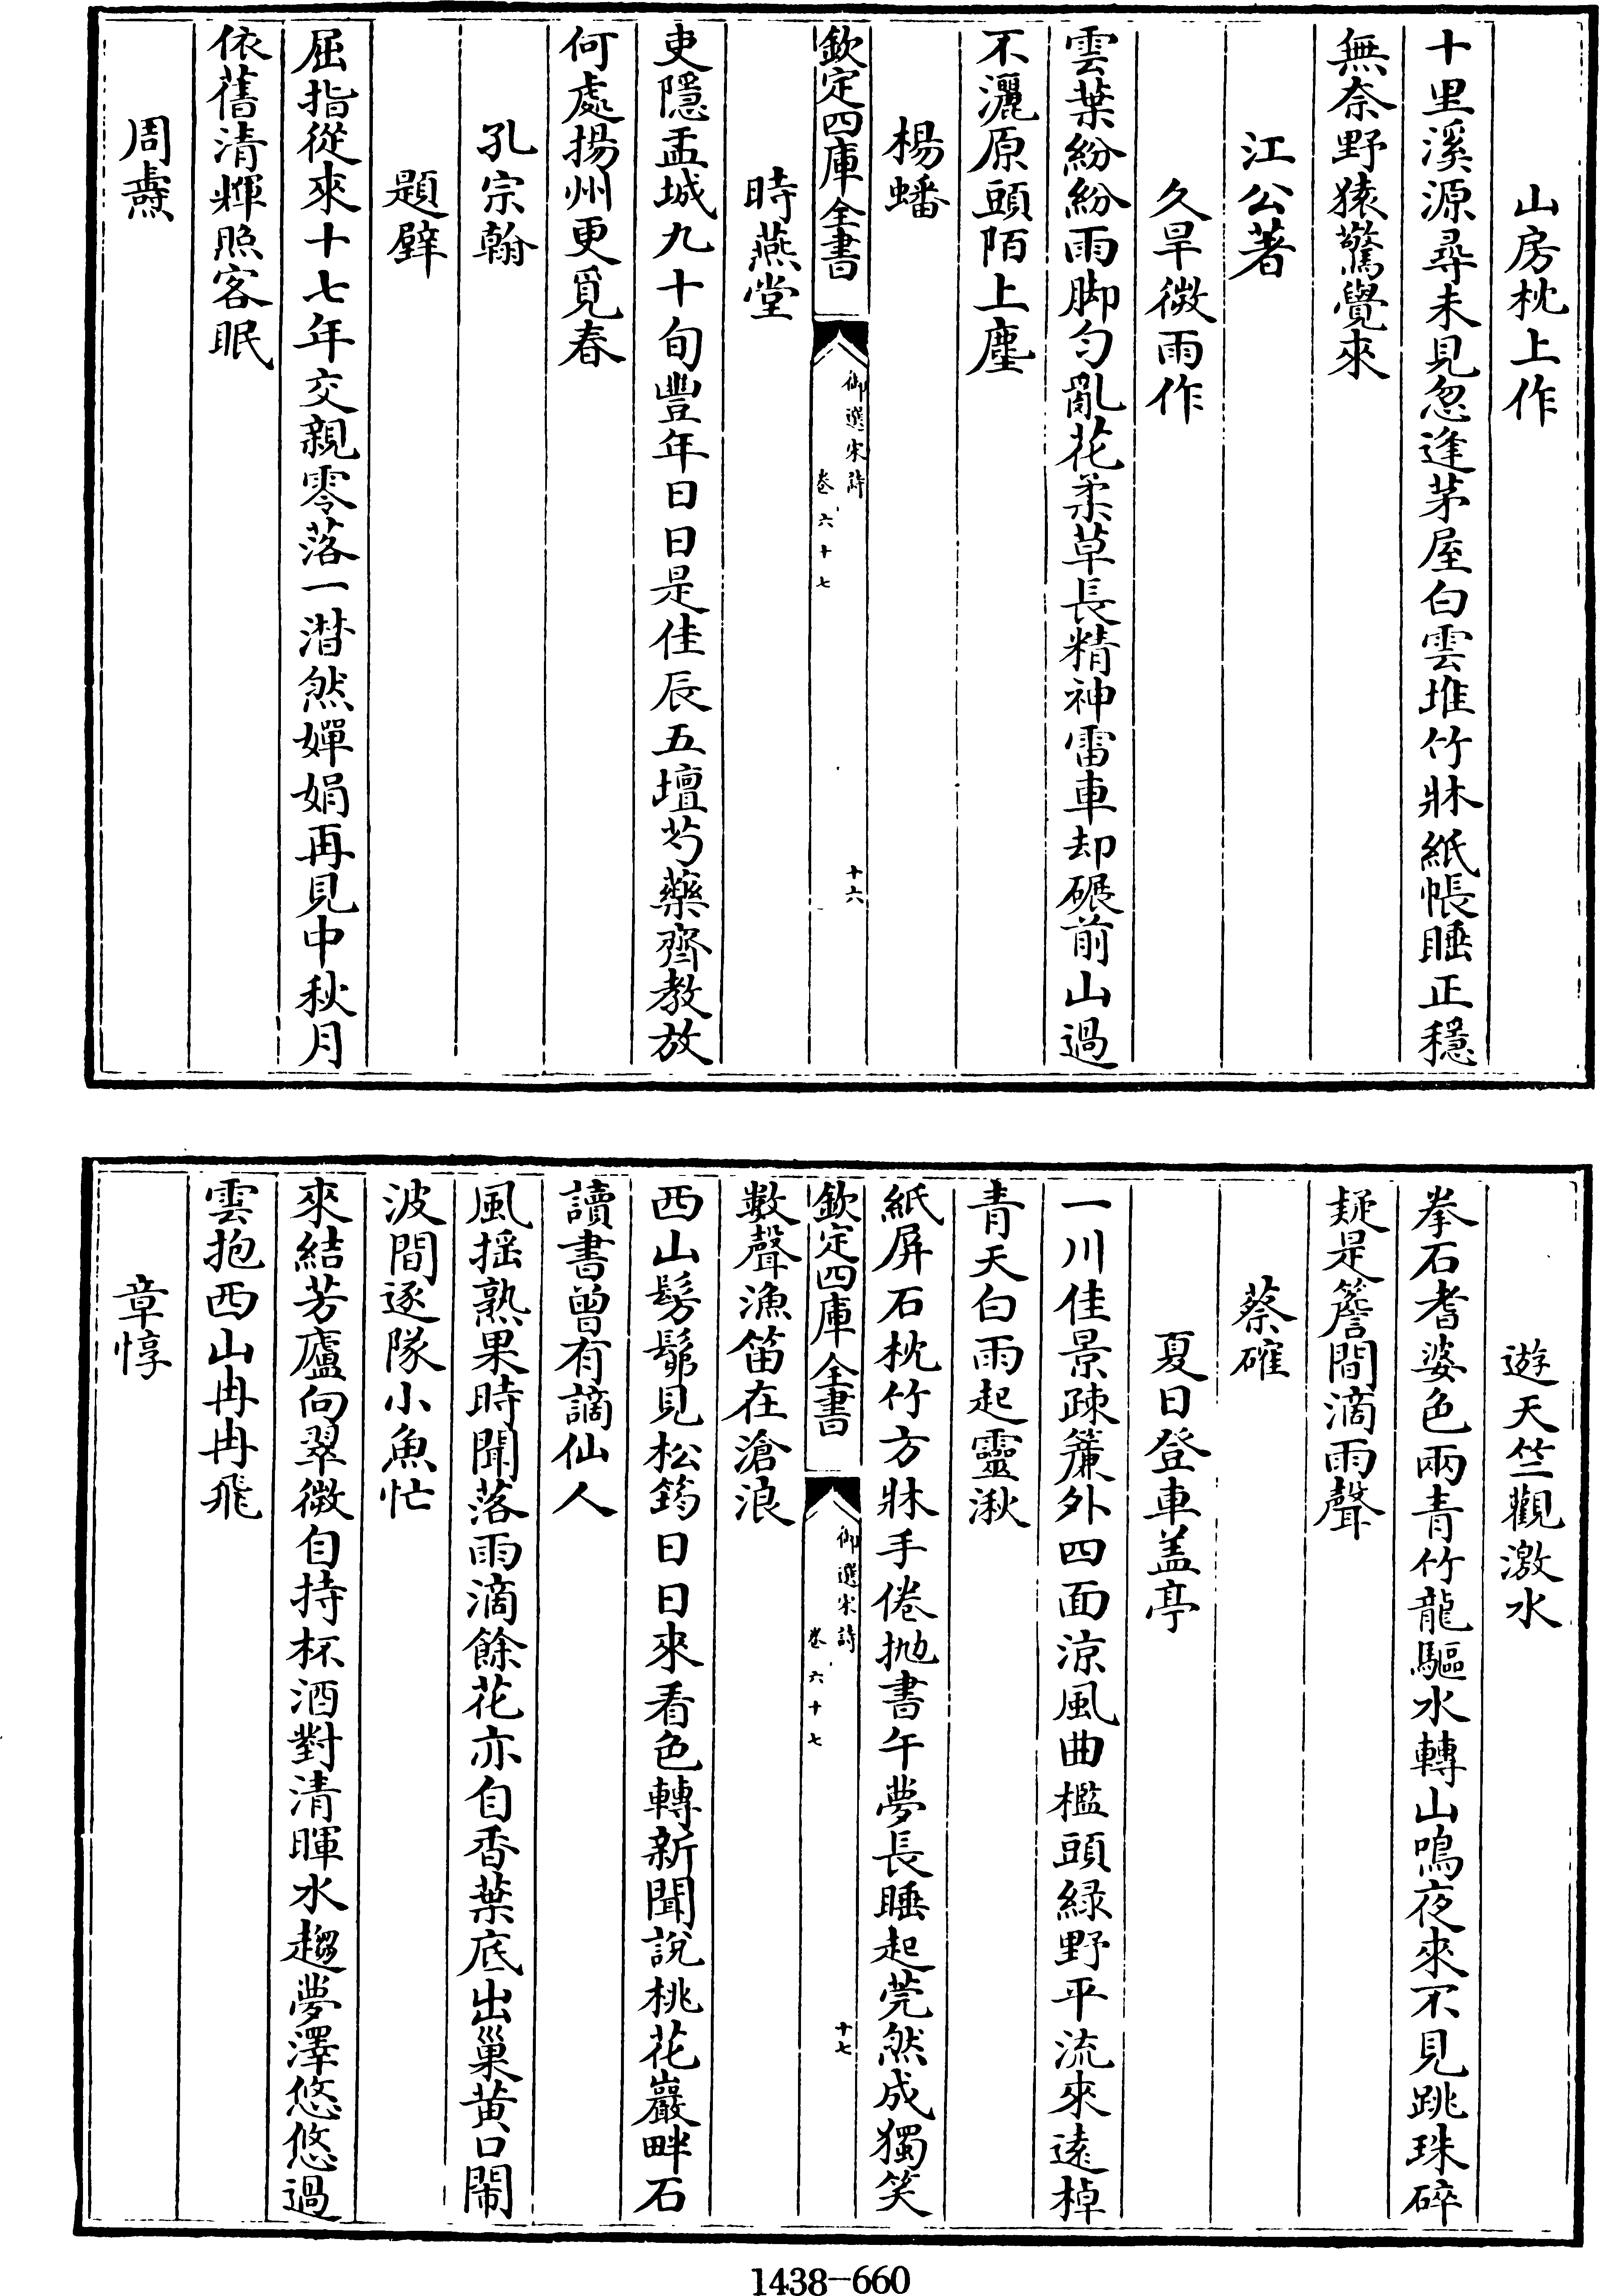 山房枕上作
十里溪源尋未見忽逢茅屋白雲堆竹牀紙帳睡正穩
無奈野猿驚覺來
江公著
久旱微雨作
雲葉紛紛雨脚勻亂花柔草長精神雷車却碾前山過
不灑原頭陌上塵
楊蟠
欽定四庫全書
御選宋詩
卷六十七
十六
時燕堂
吏隱盂城九十旬豐年日日是佳辰五壇芍藥齊教放
何處揚州更覓春
孔宗翰
題壁
屈指從來十七年交親零落一潸然嬋娟再見中秋月
依舊清輝照客眠
周燾
遊天竺觀激水
拳石耆婆色兩青竹龍驅水轉山鳴夜來不見跳珠碎
疑是簷間滴雨聲
蔡確
夏日登車盖亭
一川佳景疎簾外四面涼風曲檻頭綠野平流來遠棹
青天白雨起靈湫
紙屏石枕竹方牀手倦抛書午夢長睡起莞然成獨笑
欽定四庫全書
御選宋詩
卷六十七
十七
數聲漁笛在滄浪
西山髣髴見松筠日日來看色轉新聞說桃花巖畔石
讀書曾有謫仙人
風揺熟果時聞落雨滴餘花亦自香葉底出巢黄口閙
波間逐隊小魚忙
來結芳廬向翠微自持杯酒對清暉水趨夢澤悠悠過
雲抱西山冉冉飛
章惇
1438-660